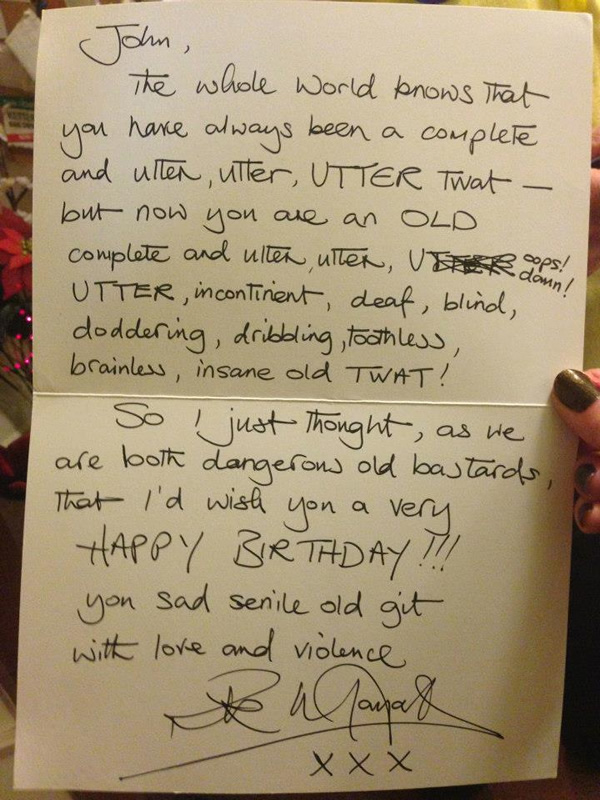 John,
The whole World knows That
you have always been a complete
and utter, utter, UTTER TWAT —
but now you are an OLD
complete and utter, utter, oops!
damn!
UTTER, incontinent, deaf, blind,
doddering, dribbling, toothless,
brainless, insane old TWAT!
So I just Thought, as we
are both dangerous old bastards,
That I'd wish you a very
HAPPY BIRTHDAY!!!
you sad senile old git
with love and violence
x x x